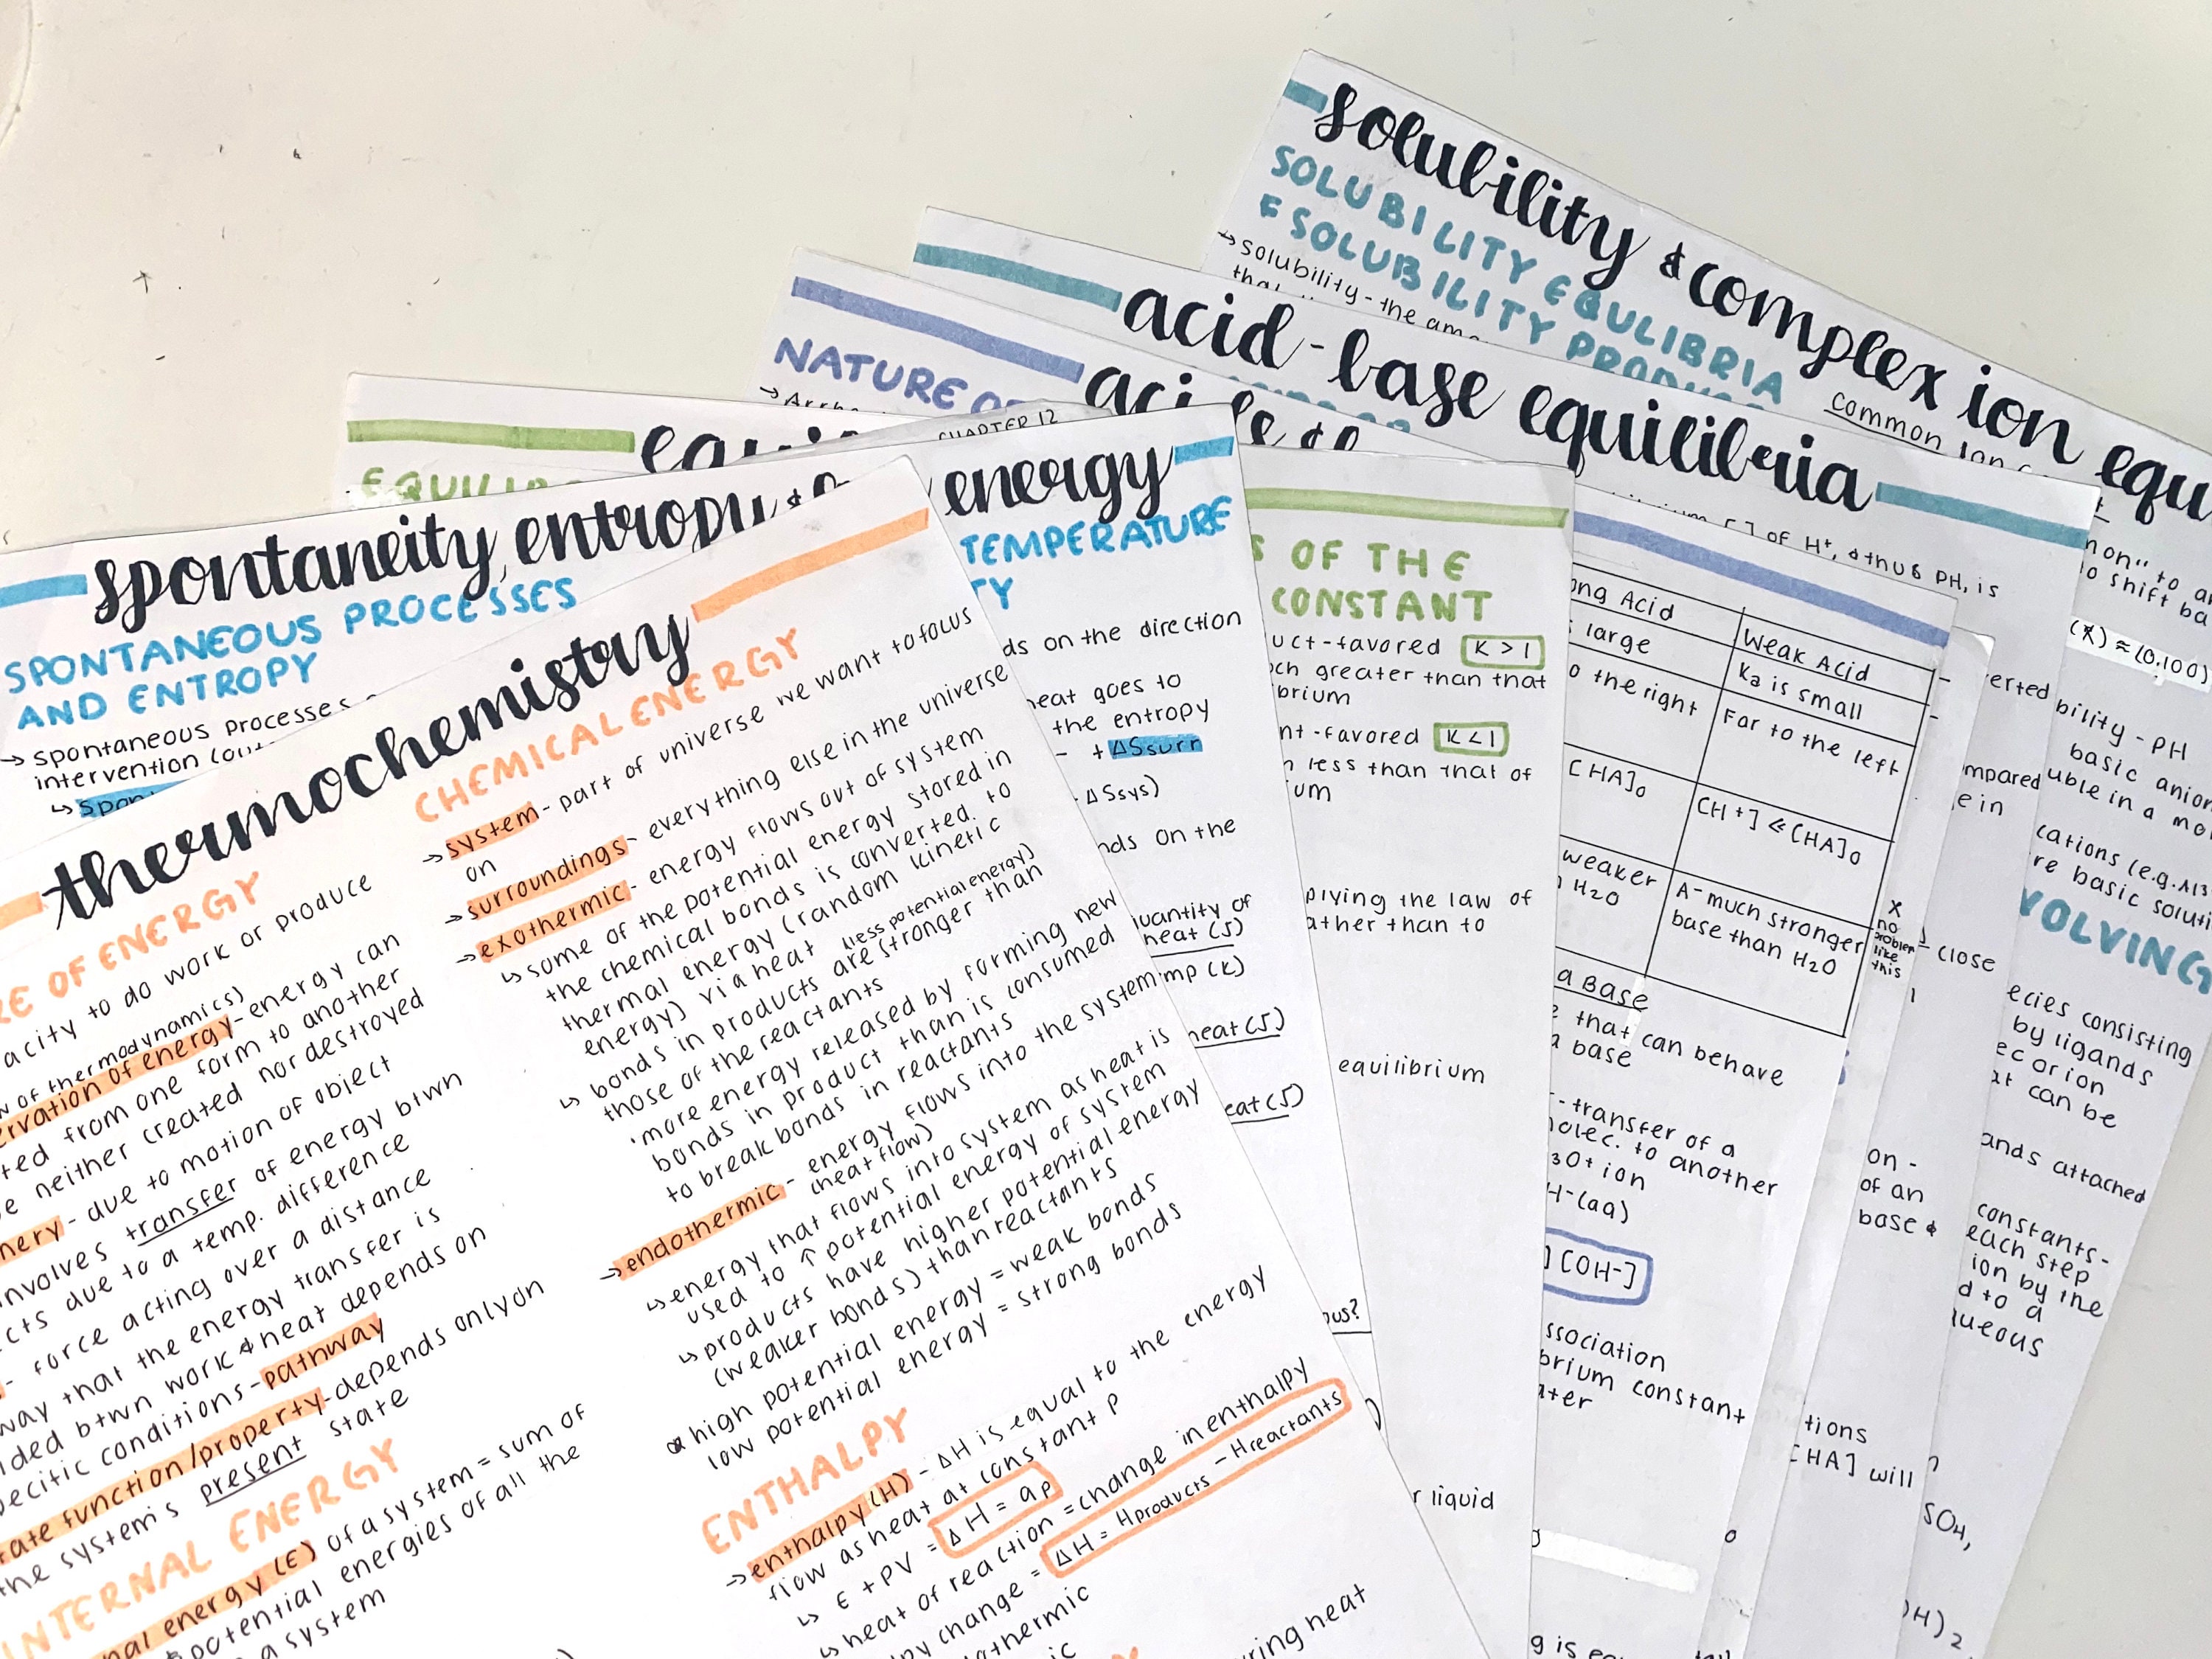 solubility & complex ion equ
SOLUBILITY EQULIBRIA
& SOLUBILITY PRODUC
→ solubility - the am
common ion
acid-base equilibria
NATURE OF
CHAPTER 12
spontaneity, entropy & energy
SPONTANEOUS PROCESSES
AND ENTROPY
→ spontaneous processes
intervention (out
↳ spon
TEMPERATURE
TY
ds on the direction
heat goes to
the entropy
- + ΔSsurr
ΔSsys)
nds on the
quantity of
heat (J)
mp (K)
heat (J)
eat (J)
ous?
thermochemistry
RE OF ENERGY
acity to do work or produce
w of thermodynamics)
ervation of energy - energy can
ted from one form to another
e neither created nor destroyed
nergy - due to motion of object
involves transfer of energy btwn
cts due to a temp. difference
- force acting over a distance
way that the energy transfer is
ided btwn work & heat depends on
pecific conditions - pathway
tate function/property - depends only on
the system's present state
INTERNAL ENERGY
nal energy (E) of a system = sum of
& potential energies of all the
a system
CHEMICAL ENERGY
→ system - part of universe we want to focus
on
→ surroundings - everything else in the universe
→ exothermic - energy flows out of system
↳ some of the potential energy stored in
the chemical bonds is converted to
thermal energy (random kinetic
energy) via heat (less potential energy)
↳ bonds in products are stronger than
those of the reactants
· more energy released by forming new
bonds in product than is consumed
to break bonds in reactants
→ endothermic - energy flows into the system
(heat flow)
↳ energy that flows into system as heat is
used to ↑ potential energy of system
↳ products have higher potential energy
(weaker bonds) than reactants
high potential energy = weak bonds
low potential energy = strong bonds
ENTHALPY
→ enthalpy (H) - ΔH is equal to the energy
flow as heat at constant P
↳ E + PV = ΔH = qp
↳ heat of reaction = change in enthalpy
py change = ΔH = Hproducts - Hreactants
othermic
ic
uring heat
EQUILIB
S OF THE
CONSTANT
uct-favored K > 1
ch greater than that
ibrium
nt-favored K < 1
n less than that of
ium
plying the law of
ather than to
equilibrium
r liquid
ong Acid
Weak Acid
s large
Ka is small
o the right
Far to the left
[HA]₀
[H⁺] ≪ [HA]₀
weaker
H₂O
A⁻ much stronger
base than H₂O
a Base
e that can behave
a base
- transfer of a
molec. to another
3O⁺ ion
H⁻(aq)
] [OH⁻]
ssociation
brium constant
ater
g is eq
] of H⁺, & thus pH, is
x
no
problem
like
this
close
erted
mpared
e in
on -
of an
base &
tions
[HA] will
non" to a
o shift ba
(x) ≈ (0.100)
bility - pH
basic anion
uble in a mo
cations (e.g. Al3
re basic soluti
VOLVING
ecies consisting
by ligands
ec or ion
at can be
ands attached
constants -
each step
ion by the
d to a
queous
SO₄,
OH)₂